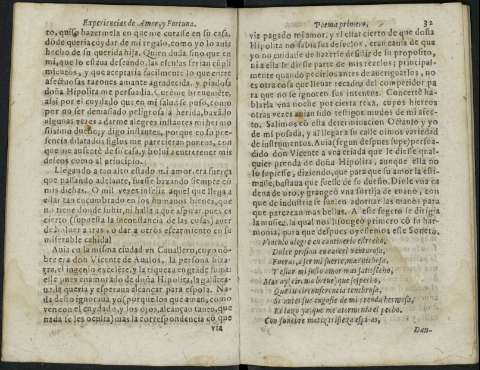 Experiencias de Amor, y Fortuna.
to, quiso hazermela en que me curasse en su casa,
donde queria cuydar de mi regalo, como yo lo auia
hecho de su querida hija. Quien duda sino que en
mi, que lo estaua deseando, las escusas serian cúpli
mientos, y que aceptaria facilmente lo que entre
afectuosas razones amante agradecida, y piadosa
doña Hipolita me persuadia. Curéme breuemente,
assi por el cuydado que en mi salud se puso, como
por no ser demasiado peligrosa la herida, baxando
algunas vezes a darme alegres instantes mi hermo
sissima dueño; y digo instantes, porque en su pre
sencia dilatados siglos me parecieran pocos, con
que me ausenté de su casa, y bolui a entretener mis
deseos como al principio.
Llegando a tan alto estado mi amor, era fuerça
que passando adelante, fuesse buxando siempre có
mis dichas. O mil vezes infeliz aquel que llega a
estar tan encumbrado en los humanos bienes, que
no tiene donde subir, ni halla a que aspirar, pues es
cierto (supuesta la inconstancia de las cosas) auer
de boluer a tras, o dar a otros escarmiento en su
miserable cahida!
Auia en la misma ciudad vn Cauallero, cuyo nó
bre era don Vicente de Aualos, la persona biza
rra, el ingenio excelente, y la riqueza en grado suma:
este pues enamorado de doña Hipolita, la galantea
ua, la queria, y esperaua alcançar para esposa. Na
da desto ignoraua yo (porque los que aman, como
yen con el cuydado, y los ojos, alcançan tanto, que
nada se les oculta) mas la correspondencia có que
via
Poema primero, 32
vie pagado mi amor, y el estar cierto de que doña
Hipolita no sabia sus desvelos, eran causa de que
yo no cuidasse de hazerle desistir de su proposito,
ni a ella le diesse parte de mis rezelos; principal-
mente quando pedirlos antes de aueriguarlos, no
es otra cosa que lleuar recados del competidor pa
ra que no se ignoren sus intentos. Concerté ha-
blarla vna noche por cierta rexa, cuyos hierros
otras vezes auian sido testigos mudos de mi afec-
to. Salimos có esta determinacion Octauio y yo
de mi posada, y al llegar a su calle oimos variedad
de instrumentos. Auia (segun despues supe) persua-
dido don Vicente a vna criada que le diesse qual-
quier prenda de doña Hipolita, aunque ella no
lo supiesse, diziendo, que para que su amor la esti-
masse, bastaua que fuesse de su dueño. Diole vna ca
dena de oro, y grangeó vna sortija de euano, con
que de industria se suelen adornar las manos para
que parezcan mas bellas. A este sugeto se dirigia
la musica, la qual no hizo eco primero có su har-
monia, para que despues oyessemos este Soneto.
Vinculo alegre en cautiuerio estrecho,
Dulce prision en carcel venturosa,
Fueras, a ser mi suerte, mas dichosa,
Y estar mi justo amor mas satisfecho,
Mas ay! circulo breue, que sospecho,
Que tu circunferencia tenebrosa,
Si antes fue engaste de mi prenda hermosa,
Es lazo ya, que me atormenta el pecho.
Con funebre matiz tristeza espiras,
Dan-